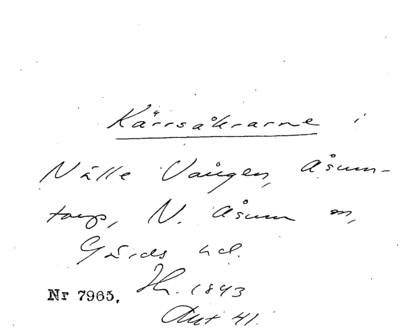 Kärrsåkrarne i
Nälle Vången, Åsum-
torp, N. Åsum sn,
Gärds hd.
Nr 7965. Hr. 1843
Akt 41.